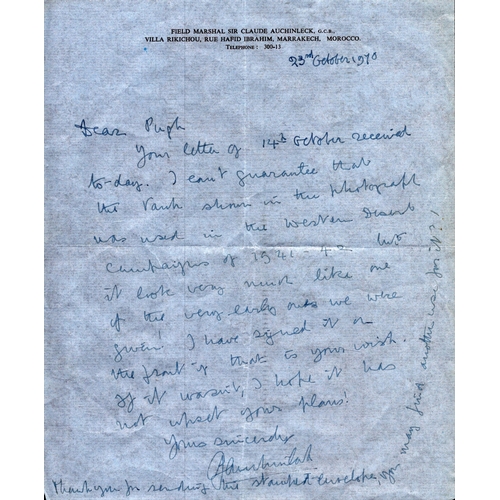 FIELD MARSHAL SIR CLAUDE AUCHINLECK, G.C.B.,
VILLA RIKICHOU, RUE HAFID IBRAHIM, MARRAKECH, MOROCCO.
TELEPHONE : 300-13
23rd October 1970
Dear Pugh
Your letter of 14th October received
to-day. I can't guarantee that
the tank shown in the photograph
was used in the Western Desert
campaigns of 1941-42 but
it look very much like one
of the very early ones we were
given! I have signed it on
the front if that is your wish.
If it wasn't, I hope it has
not upset your plans!
Yours sincerely
CAuchinleck
Thank you for sending the stamped envelope, you
may find another use for it?!